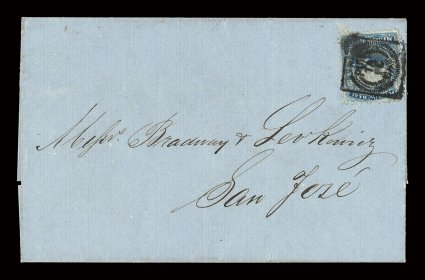 Messrs. Bradway & Levkowicz
San José